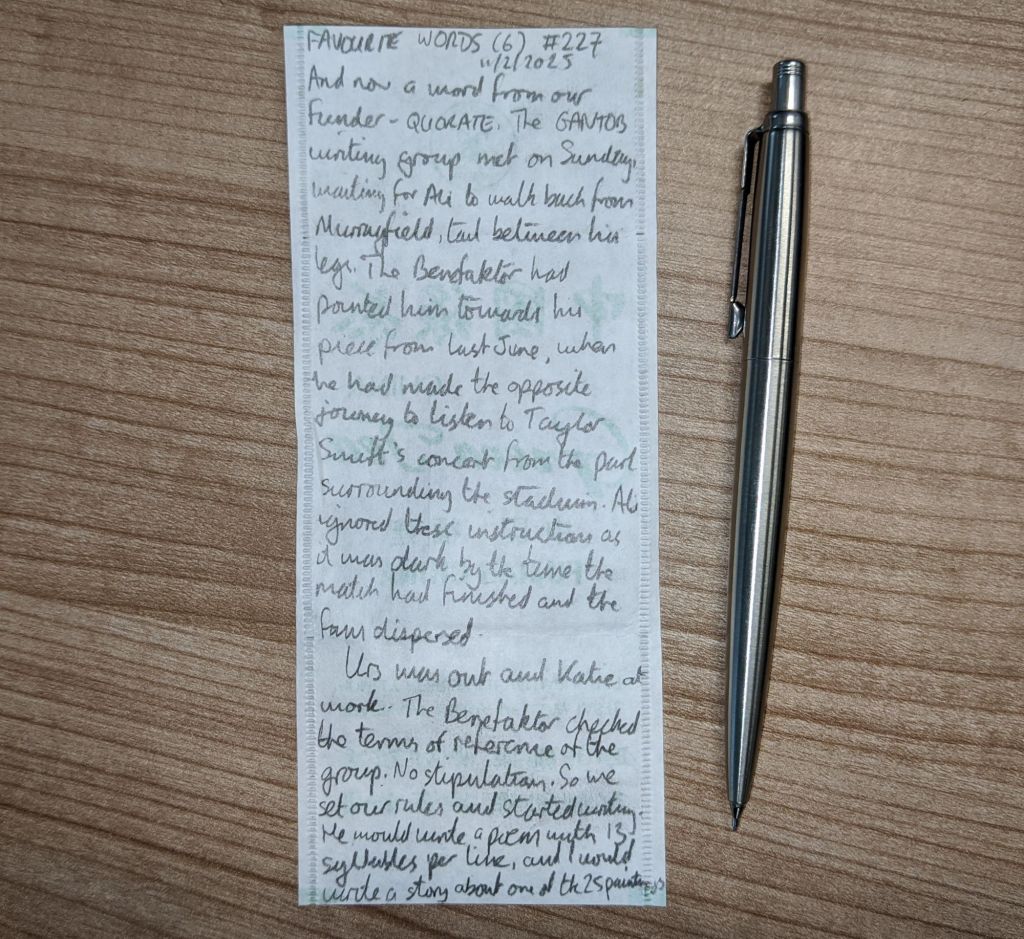 FAVOURITE WORDS (6) #227
11/2/2025
And now a word from our
Funder - QUORATE. The GANTOB
writing group met on Sunday,
waiting for Ali to walk back from
Murrayfield, tail between his
legs. The Benefaktor had
pointed him towards his
piece from last June, when
he had made the opposite
journey to listen to Taylor
Swift's concert from the park
surrounding the stadium. Ali
ignored these instructions as
it was dark by the time the
match had finished and the
fans dispersed.
Urs was out and Katie at
work. The Benefaktor checked
the terms of reference of the
group. No stipulation. So we
set our rules and started writing.
He would write a poem with 13
syllables per line, and I would
write a story about one of the 25 paintings